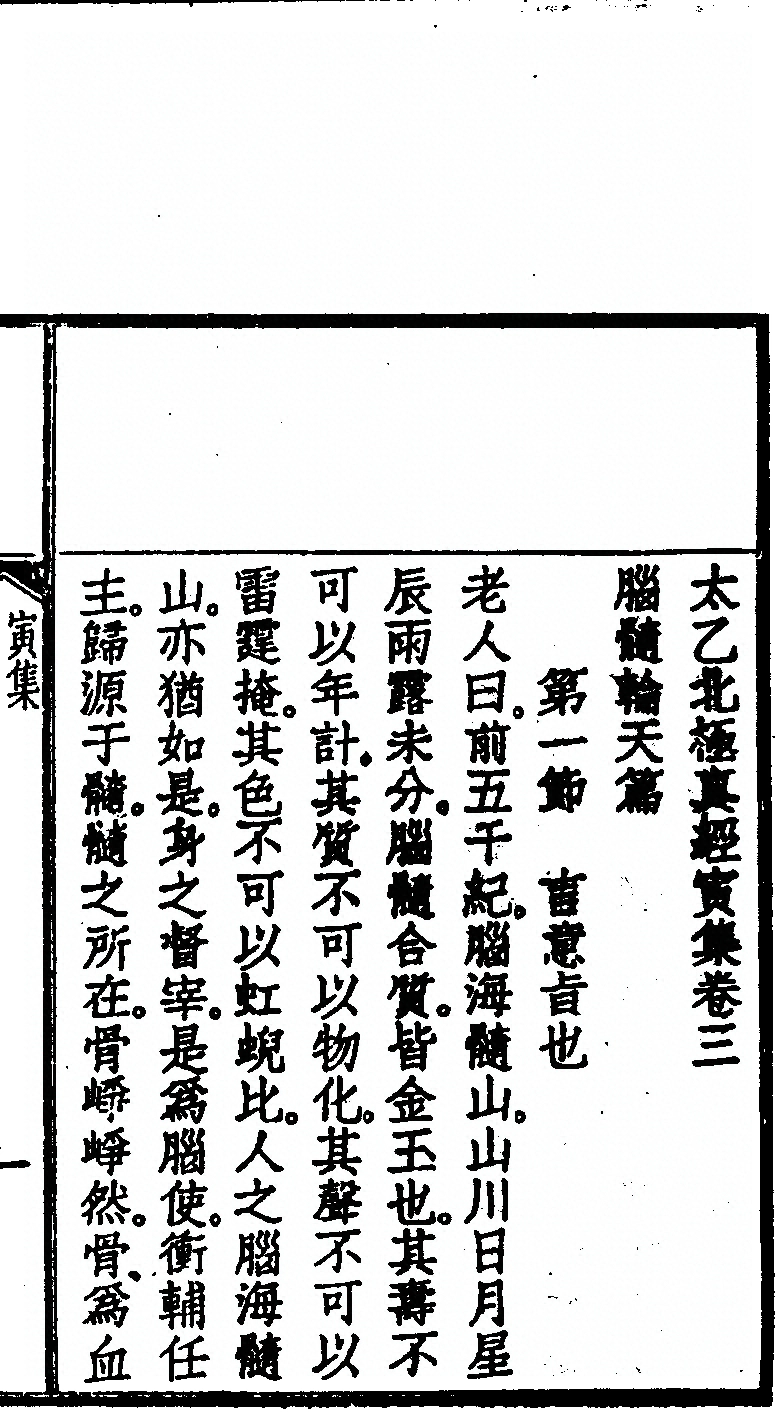 太乙北極真經寅集卷三
腦髓輪天篇
第一節　言意旨也
老人曰。前五千紀。腦海髓山。山川日月星
辰雨露未分。腦髓合質。皆金玉也。其壽不
可以年計。其質不可以物化。其聲不可以
雷霆掩。其色不可以虹蜺比。人之腦海髓
山。亦猶如是。身之督宰。是爲腦使。衝輔任
主。歸源于髓。髓之所在。骨崢崢然。骨爲血
寅集
一